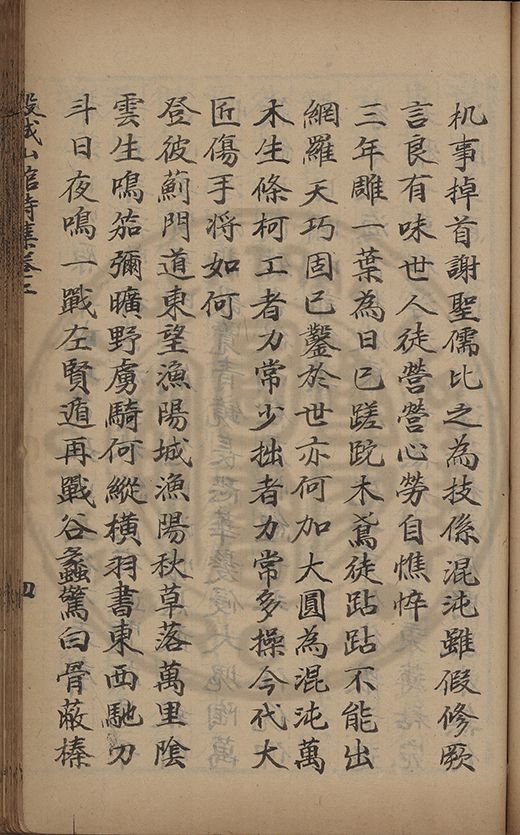 机事掉首謝聖儒比之為技係混沌雖假修厥
言良有味世人徒營營心勞自憔悴
三年雕一葉為日已蹉跎木鳶徒跕跕不能出
網羅天巧固已鑿於世亦何加大圓為混沌萬
木生條柯工者力常少拙者力常多操今代大
匠傷手将如何
登彼薊門道東望漁陽城漁陽秋草落萬里陰
雲生鳴笳彌曠野虜騎何縱橫羽書東西馳刀
斗日夜鳴一戰左賢遁再戰谷蠡驚白骨蔽榛
穀城山館詩集卷二
四